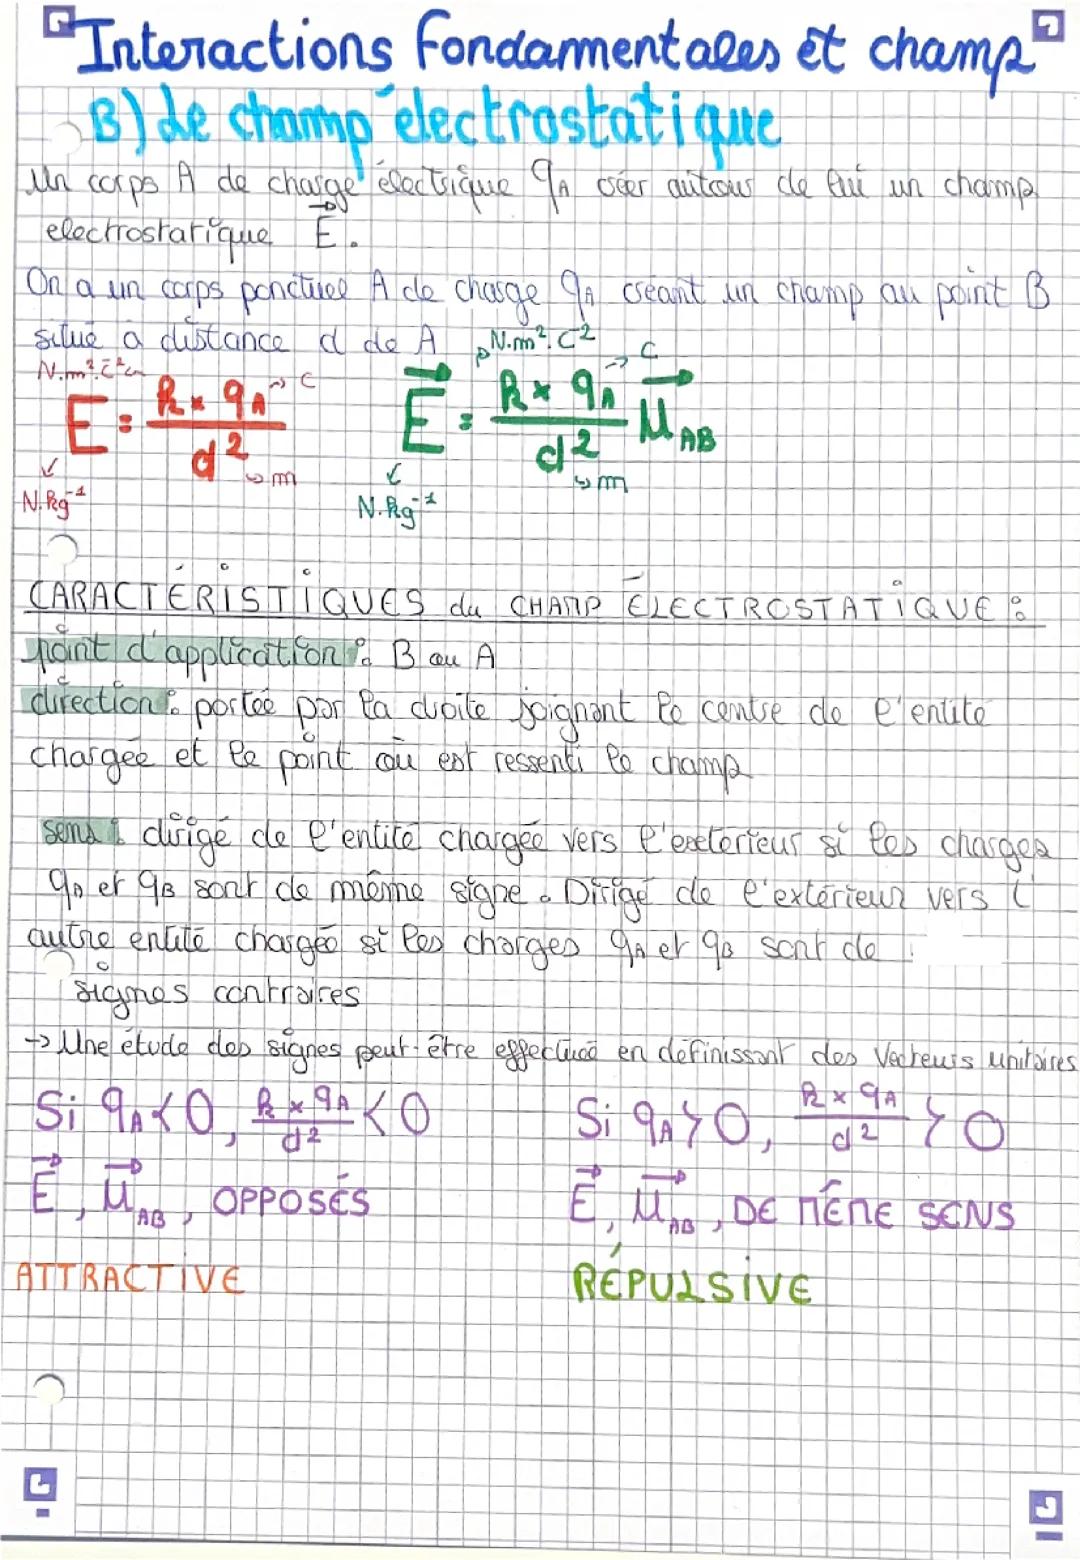 Interactions fondamentales et champ
B) Le champ électrostatique
Un corps A de charge électrique qA créer autour de lui un champ
electrostatique E⃗.
On a un corps ponctuel A de charge qA créant un champ au point B
situé à distance d de A
N.m².C⁻² k × qA → C
E = k × qA / d² → m
N.kg⁻¹
N.m².C⁻² → C
E⃗ = k × qA / d² u⃗AB → m
N.kg⁻¹
CARACTÉRISTIQUES du CHAMP ÉLECTROSTATIQUE :
point d'application : B ou A
direction : portée par la droite joignant le centre de l'entité
chargée et le point où est ressenti le champ
sens : dirigé de l'entité chargée vers l'exetérieur si les charges
qA et qB sont de même signe. Dirigé de l'extérieur vers l'
autre entité chargée si les charges qA et qB sont de
signes contraires
→ Une étude des signes peut-être effectuée en définissant des Vecteurs unitaires
Si qA < 0, k × qA / d² < 0
E⃗, u⃗AB, OPPOSÉS
ATTRACTIVE
Si qA > 0, k × qA / d² > 0
E⃗, u⃗AB, DE MÊME SENS
RÉPULSIVE